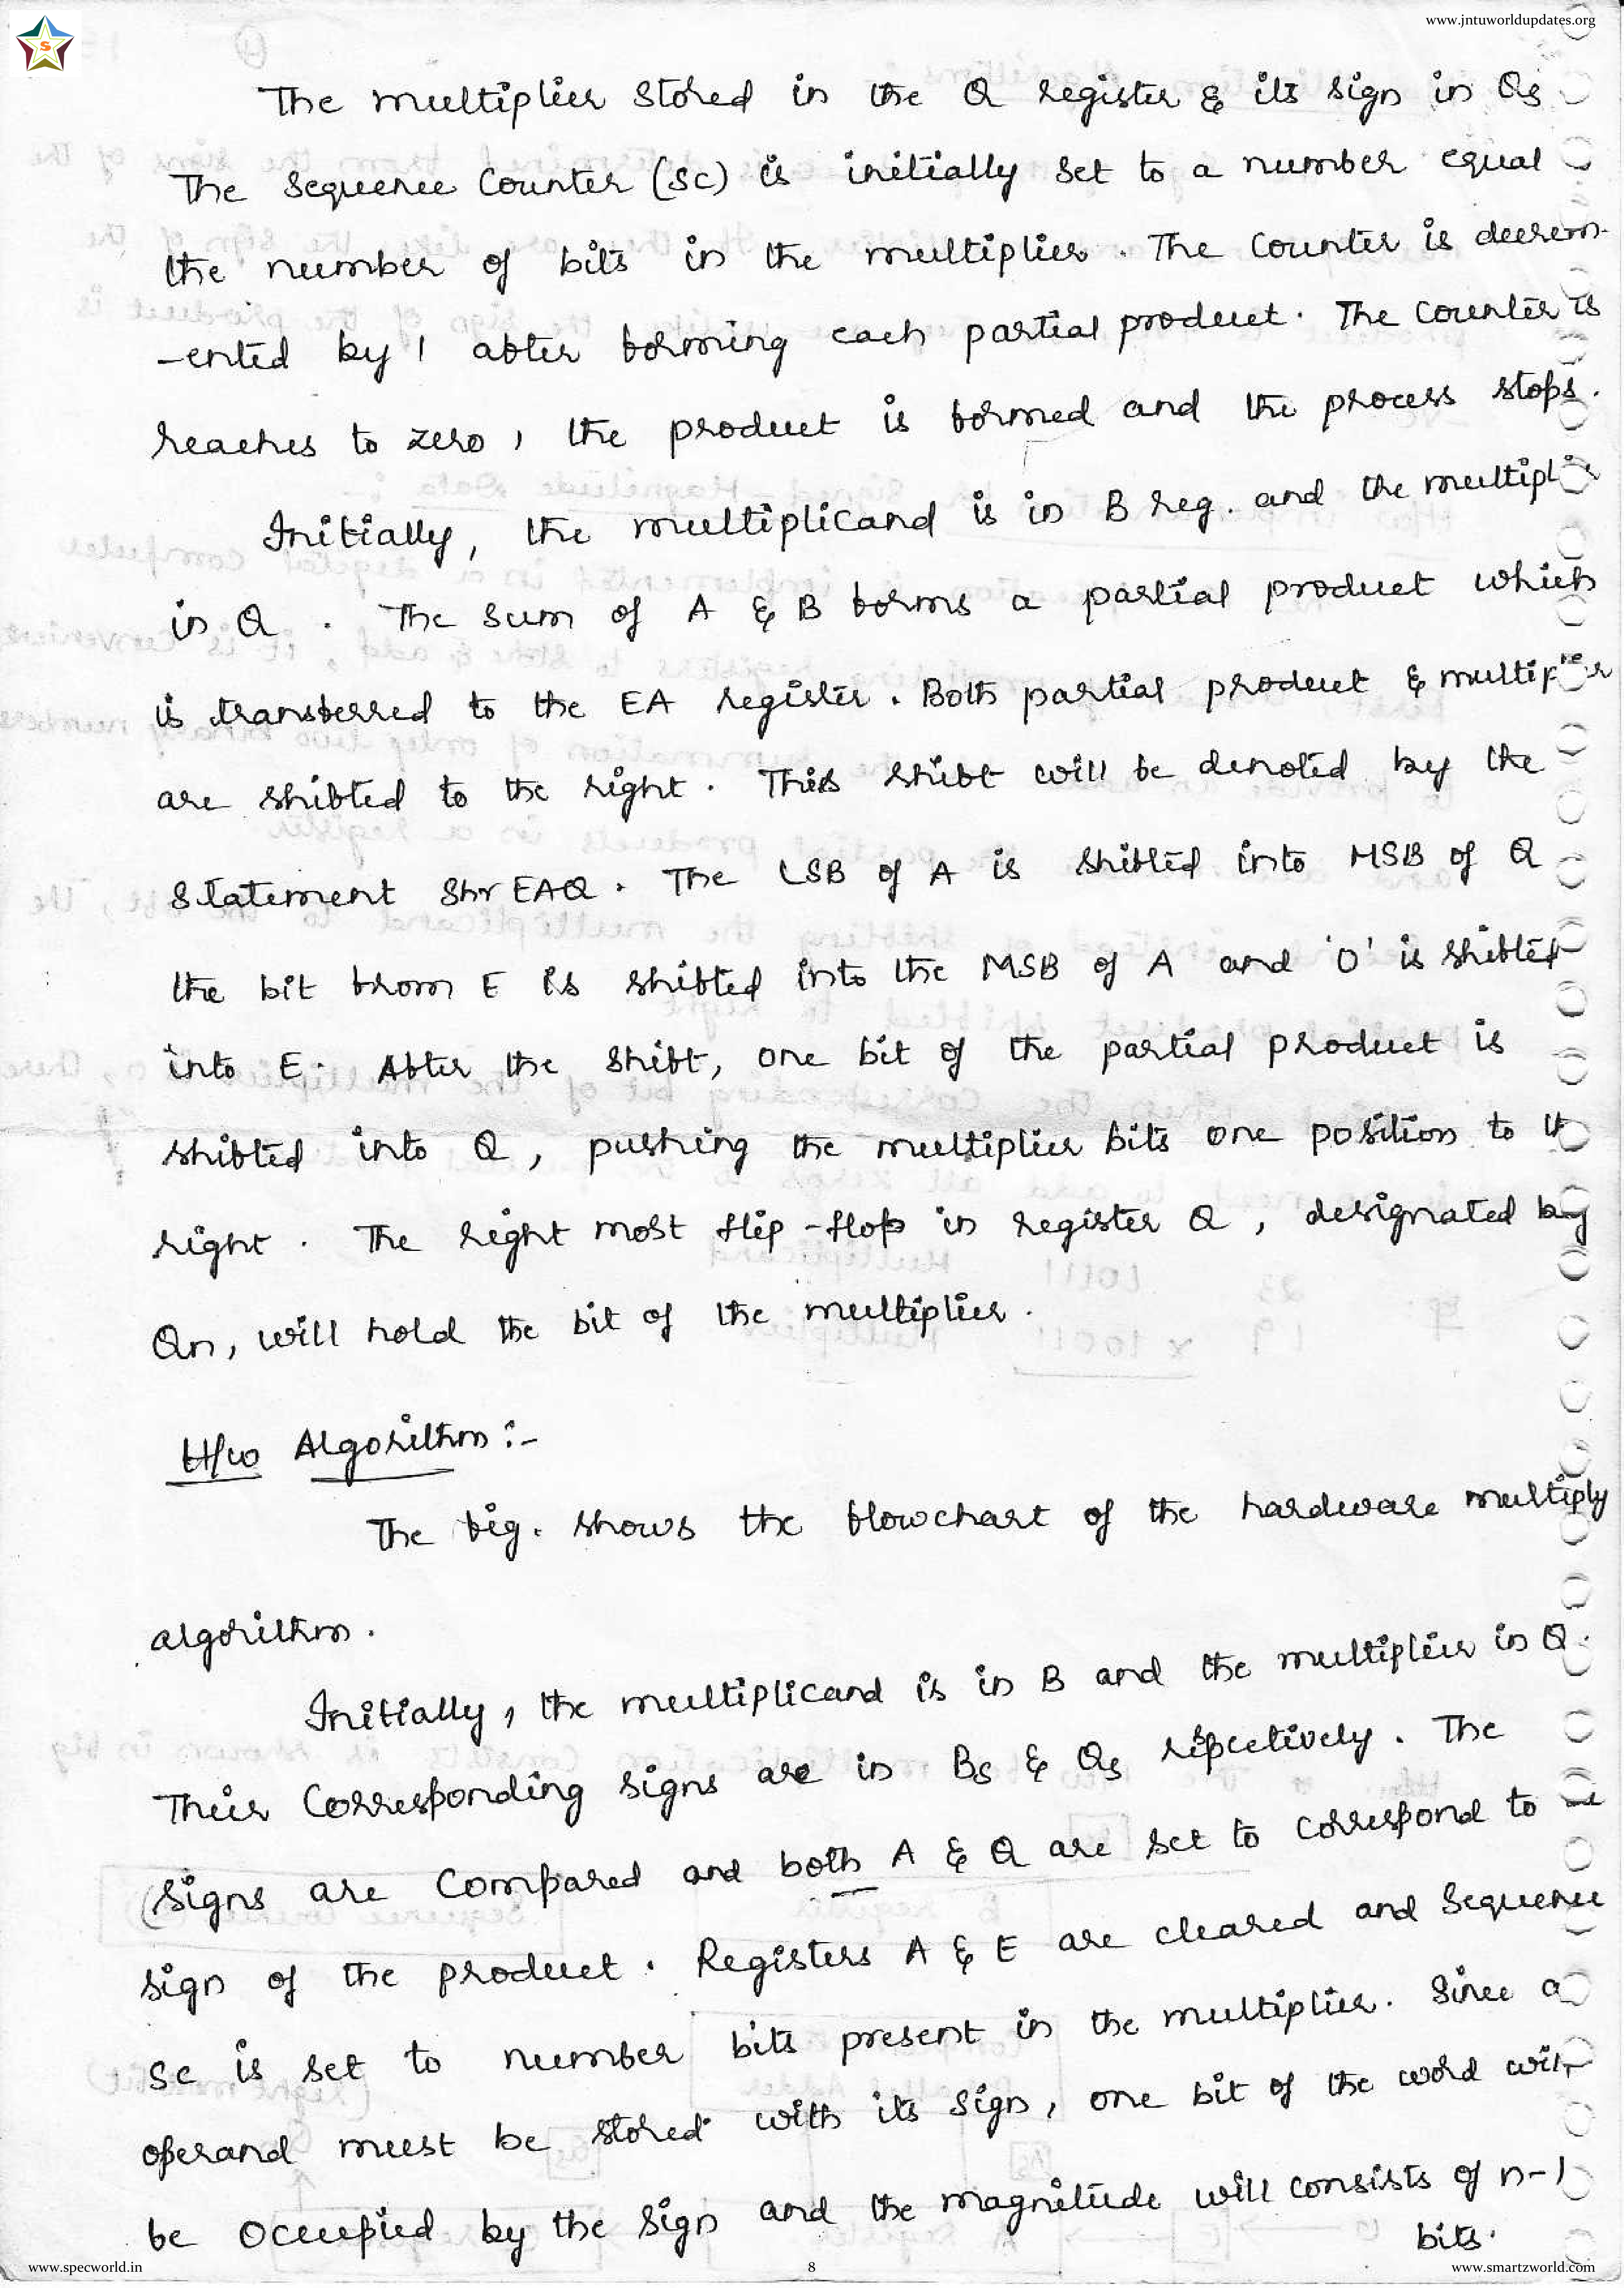 www.jntuworldupdates.org
S
The multiplier stored in the Q register & its sign in Qs
The Sequence Counter (SC) is initially set to a number equal
the number of bits in the multiplier. The counter is decrem-
-ented by 1 after forming each partial product. The counter is
reaches to zero, the product is formed and the process stops.
Initially, the multiplicand is in B reg. and the multiplie
in Q. The sum of A & B forms a partial product which
is transferred to the EA register. Both partial product &
are shifted to the right. This shift will be denoted by the
statement Shr EAQ. The LSB of A is shifted into MSB of Q
the bit from E is shifted into the MSB of A and '0' is shifted
into E. After the shift, one bit of the partial product is
shifted into Q, pushing the multiplier bits one position to
right. The right most flip-flop in register Q, designated by
Qn, will hold the bit of the multiplier.
H/w Algorithm :-
The fig. shows the flowchart of the hardware multiply
algorithm.
Initially, the multiplicand is in B and the multiplier in Q.
Their Corresponding signs are in Bs & Qs repectively. The
(signs are Compared and both A & Q are set to correspond to
sign of the product. Registers A & E are cleared and Sequence
SC is set to number bits present in the multiplier. Since a
operand must be stored with its sign, one bit of the word will
be occupied by the sign and the magnitude will consists of n-1
bits.
www.specworld.in 8 www.smartzworld.com